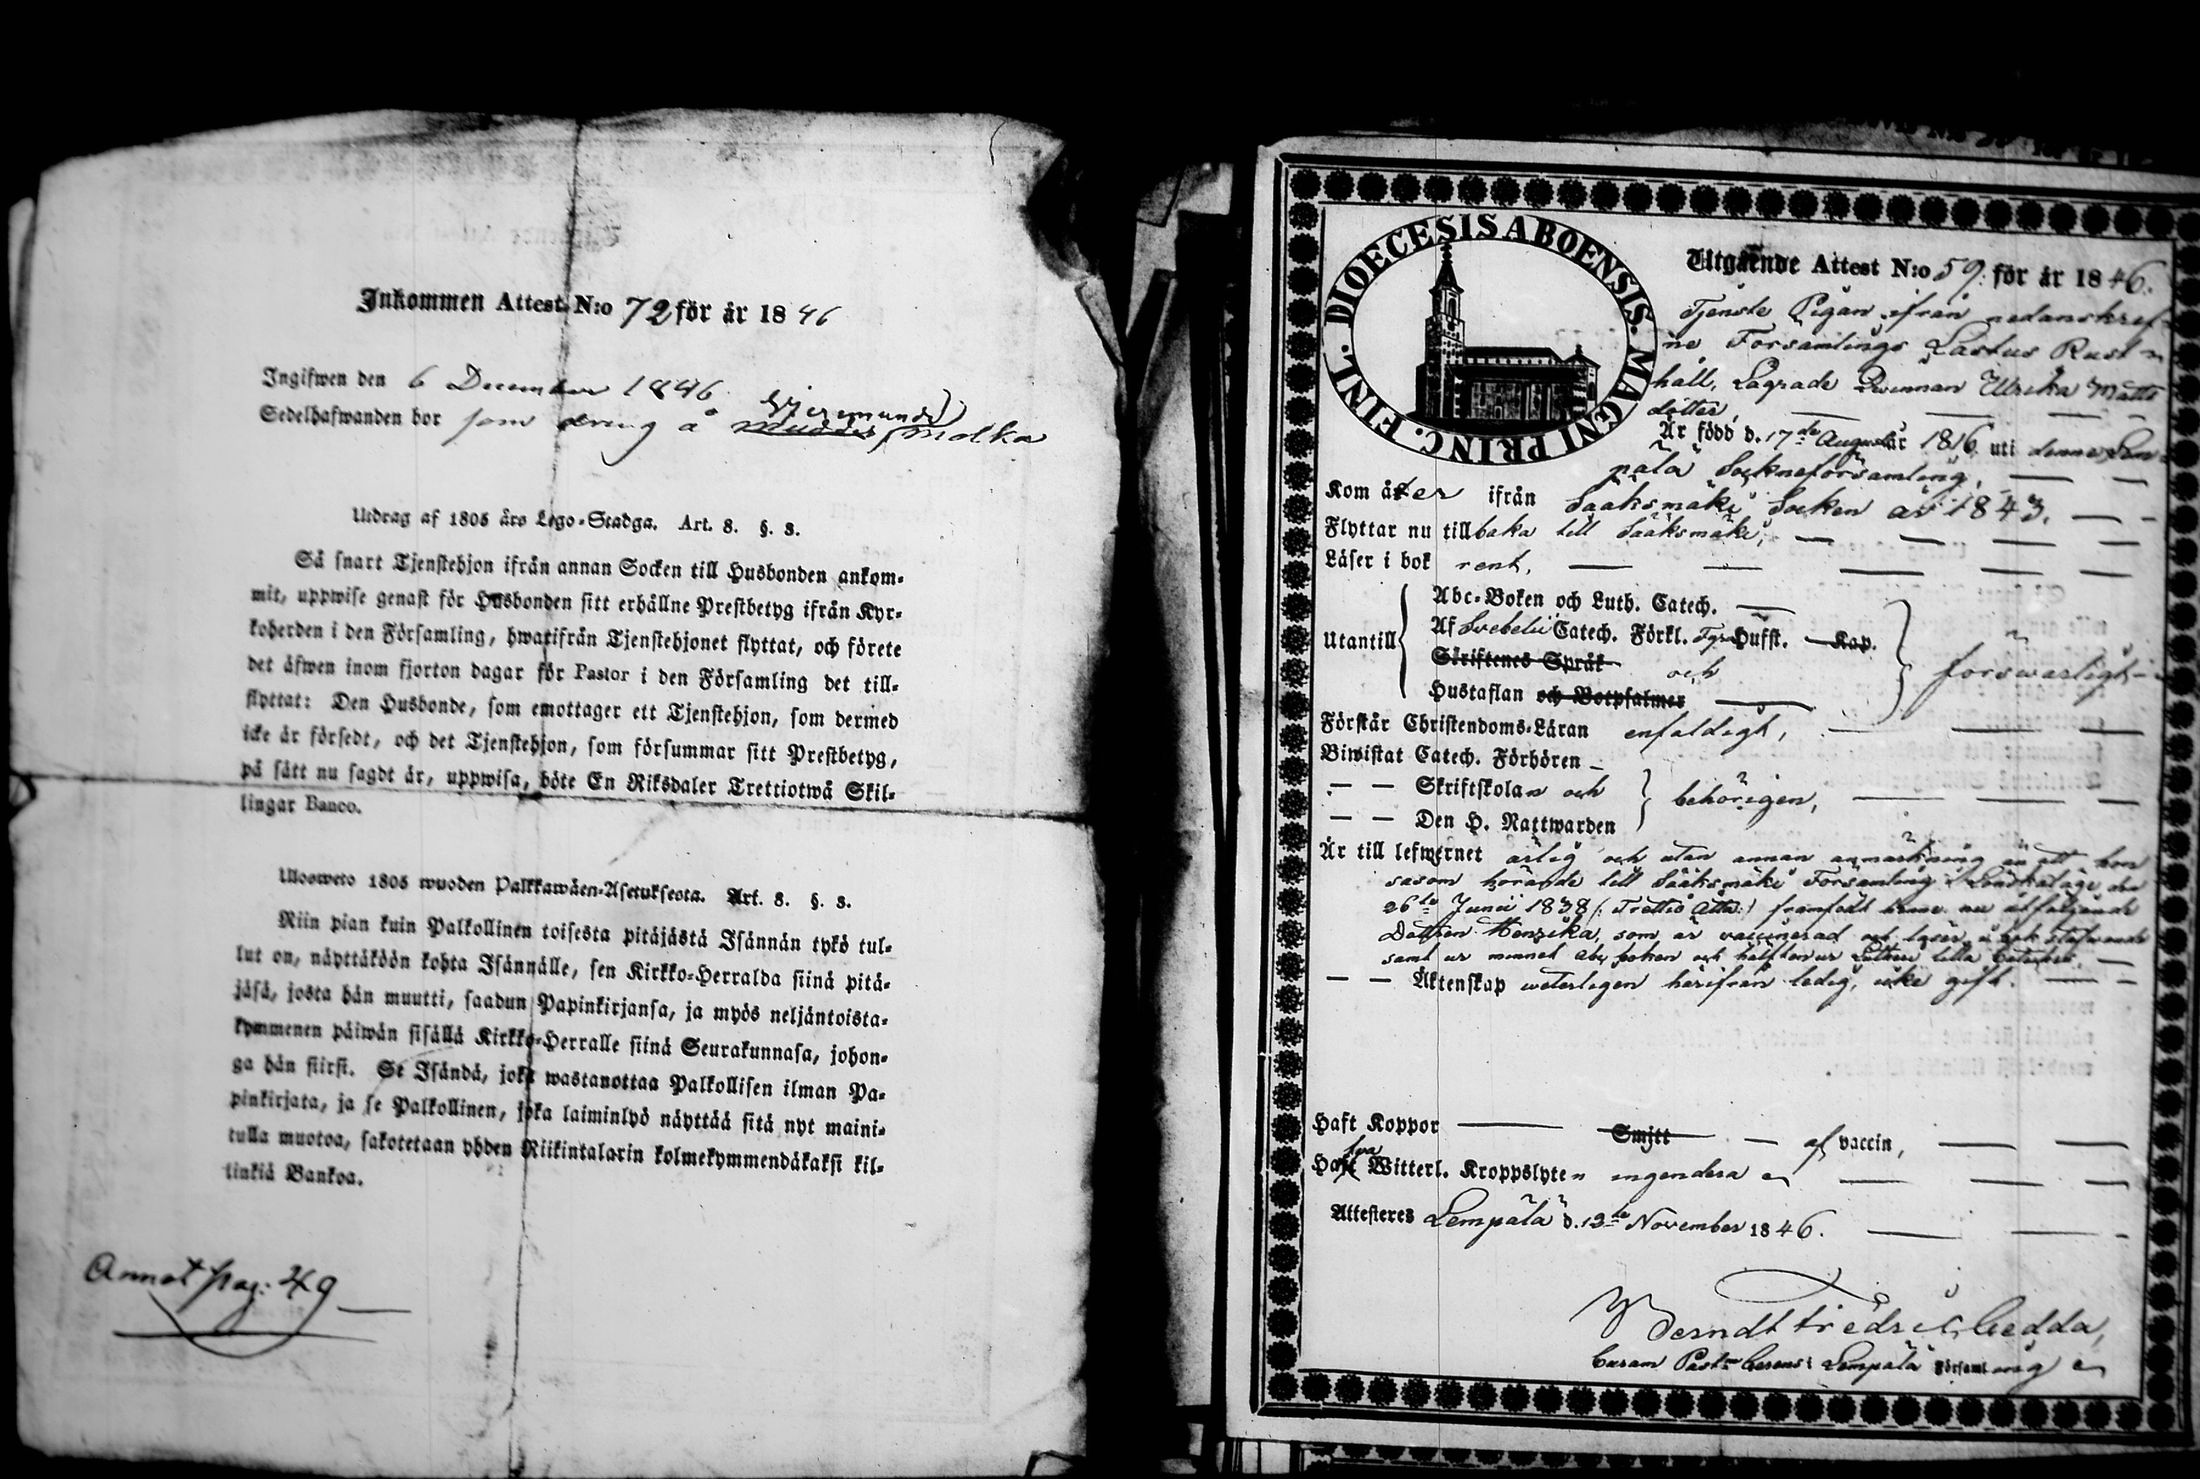 Inkommen Attest N:o 72 för år 1846
Ingifwen den 6 December 1846
Sedelhafwanden bor som dreng å
Molka
Utdrag af 1805 års Lego-Stadga. Art. 8. §. 3.
Så snart Tjenstehjon ifrån annan Socken till Husbonden ankom-
mit, uppwise genast för Husbonden sitt erhållne Prestbetyg ifrån Kyr-
koherden i den Församling, hwarifrån Tjenstehjonet flyttat, och förete
det äfwen inom fjorton dagar för Pastor i den Församling det till-
flyttat: Den Husbonde, som emottager ett Tjenstehjon, som dermed
icke är försedt, och det Tjenstehjon, som försummar sitt Prestbetyg,
på sätt nu sagdt är, uppwisa, böte En Riksdaler Trettiotwå Skil-
lingar Banco.
Ulosweto 1805 wuoden Palkkawäen-Asetuksesta. Art. 8. §. 3.
Niin pian kuin Palkollinen toisesta pitäjästä Isännän tykö tul-
lut on, näyttäköön kohta Isännälle, sen Kirkko-Herralda siinä pitä-
jäsä, josta hän muutti, saadun Papinkirjansa, ja myös neljäntoista-
kymmenen päiwän sisällä Kirkko-Herralle siinä Seurakunnasa, johon-
ga hän siirsi. Se Isändä, joka wastanottaa Palkollisen ilman Pa-
pinkirjata, ja se Palkollinen, joka laiminlyö näyttää sitä nyt maini-
tulla muotoa, sakotetaan yhden Riikintalarin kolmekymmendäkaksi kil-
linkiä Bankoa.
Annot pag: 49
DIOECESIS ABOENSIS. MAGNI PRINC. FINL.
Utgående Attest N:o 59. för år 1846.
Tjenste Pigan ifrån nedanskref-
ne Församlings Lastus Rust
håll, Lägrade Qwinnan Ulrika Matts
dotter,
Är född d. 17de Augusti år 1816 uti denne Lem-
pälä Sockneförsamling.
Kom åter ifrån Sääksmäki Socken år 1843.
Flyttar nu tillbaka till Sääksmäki,
Läser i bok rent,
Utantill
Abc-Boken och Luth. Catech.
Af Svebelii Catech. Förkl. Tyra Hufst. Kap.
Skriftenes Språk
och
Hustaflan och Botpsalmer
förswarligt
Förstår Christendoms-Läran enfaldigt,
Biwistat Catech. Förhören
— — Skriftskolan och
— — Den H. Nattwarden
behörigen,
Är till lefwernet ärlig och utan annan anmärkning än att hon
såsom hörande till Sääksmäki Församling i Lönskaläge den
26te Junii 1838 (: Trettio Åtta:) framfödt henne nu åtföljande
Dottren Henrika, som är vaccinerad och läser i bok stafwande
samt ur minnet Abc boken och hälften ur Lutheri lilla Cateches.
— — Äktenskap weterligen härifrån ledig, icke gift.
Haft Koppor Smitt af vaccin,
Hafwa Witterl. Kroppslyten ingendera
Attesteres Lempälä d. 13de November 1846.
Berndt Fredric Gedda,
Curam Past. Gerens i Lempälä Församling